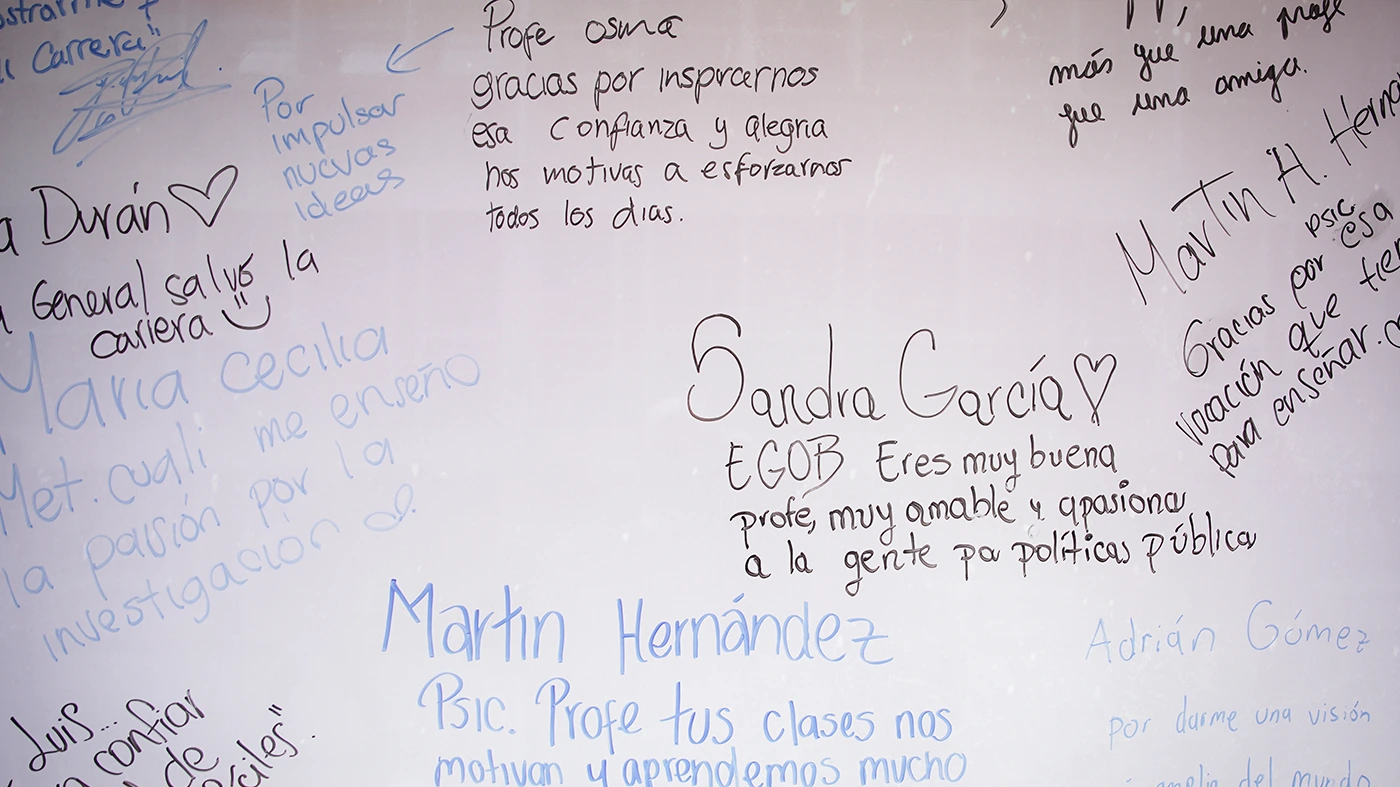 carrera"
Por
impulsar
nuevas
ideas
Profe osma
gracias por inspirarnos
esa confianza y alegria
nos motivas a esforzarnos
todos los dias.
más que una profe
que una amiga.
Durán
General salvo la
carrera
María Cecilia
Met. cuali me enseño
la pasión por la
investigación
Martin H.
psic.
Gracias por esa
vocación que
para enseñar.
Sandra García
EGOB Eres muy buena
profe, muy amable y apasiona
a la gente pa políticas pública
Martin Hernández
Psic. Profe tus clases nos
motivan y aprendemos mucho
Adrián Gómez
por darme una visión
del mundo
Luis...
confiar
de